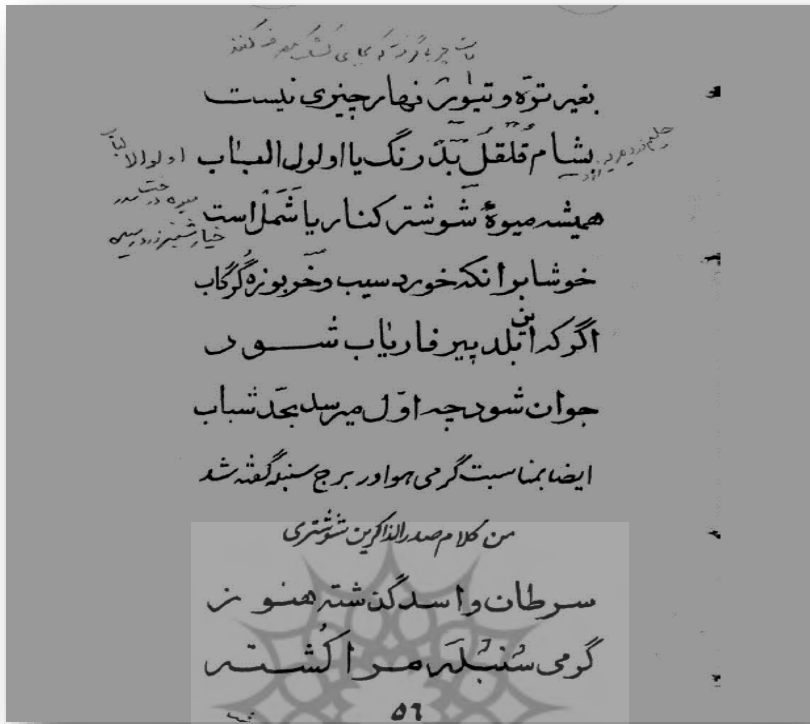 بغیر توّه و تیوٖیز نهار چیزی نیست
بشام قلقل بَدْ رنگ یا اولول البٰاب
اولوالالباب
همیشه میوهٔ شوشتر کنار یا شَمَلْ است
میوه درخت سدر
خوشا بر انکه خورد سیب و خربوزه گُرگاب
اگر که این بلد پیر فاریاب شود
جوان شود چه اوّل میرسد بحَدّ شباب
ایضا بمناسبت گرمی هوا در برج سنبله گفته شد
من کلام صدرالذاکرین شوشتری
سرطان و اسد گذشته هنوز
گرمی سُنبُلَه مرا کُشته
۵۶